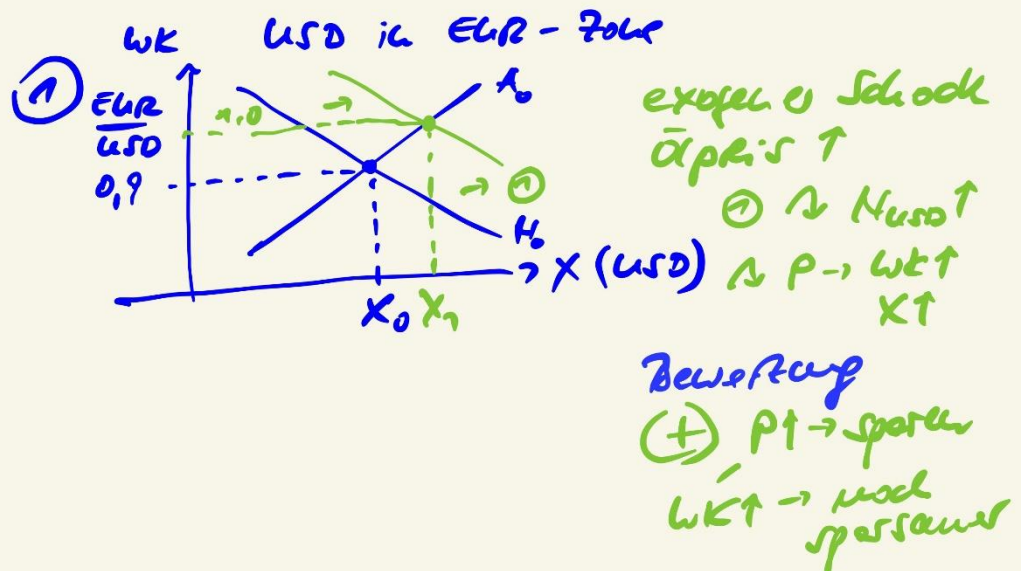 WK USD in EUR-Zone
① EUR/USD
1,0
0,9
A₀
→ ①
N₀
→ X (USD)
X₀ X₁
exogener Schock
Ölpreis ↑
① ↷ N USD ↑
↷ P → WK ↑
X ↑
Bewertung
(+) P↑ → sparen
WK↑ → noch
sparsamer